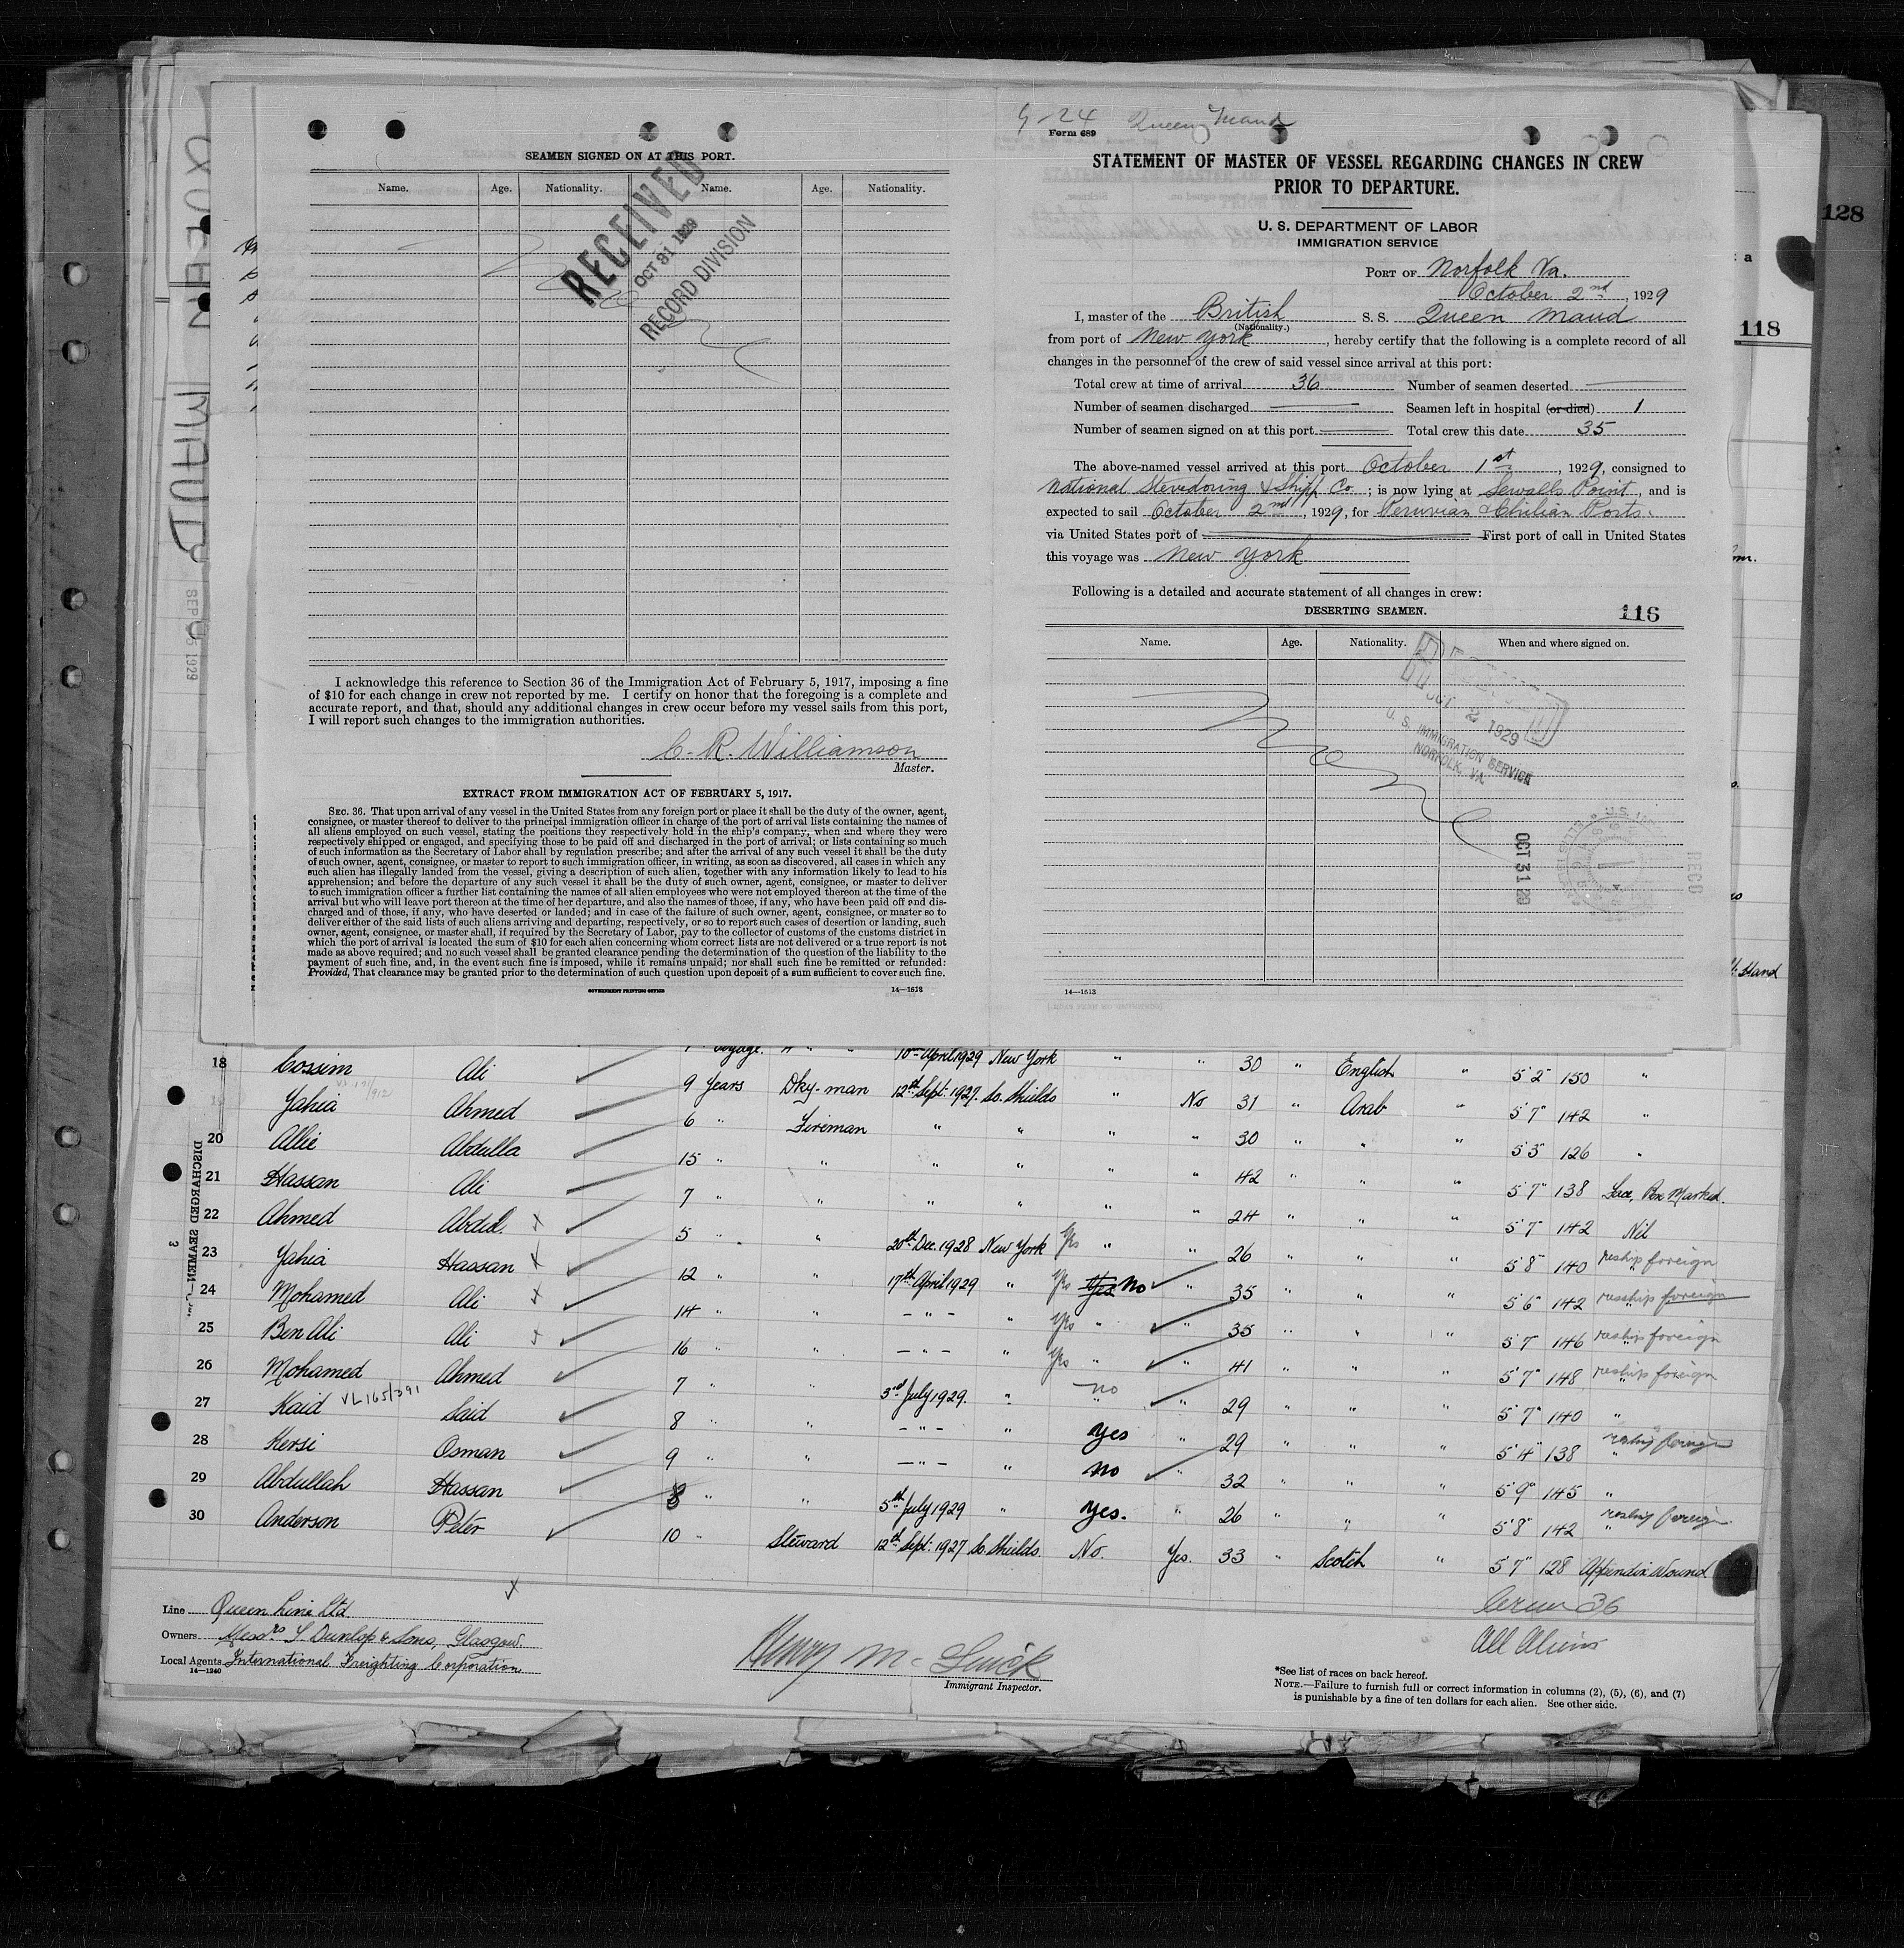 QUEEN MAUD
SEP 5 1929
128
118
SEAMEN SIGNED ON AT THIS PORT.
Name. Age. Nationality. Name. Age. Nationality.
RECEIVED
OCT 31 1929
RECORD DIVISION
I acknowledge this reference to Section 36 of the Immigration Act of February 5, 1917, imposing a fine
of $10 for each change in crew not reported by me. I certify on honor that the foregoing is a complete and
accurate report, and that, should any additional changes in crew occur before my vessel sails from this port,
I will report such changes to the immigration authorities.
C. R. Williamson
Master.
EXTRACT FROM IMMIGRATION ACT OF FEBRUARY 5, 1917.
SEC. 36. That upon arrival of any vessel in the United States from any foreign port or place it shall be the duty of the owner, agent,
consignee, or master thereof to deliver to the principal immigration officer in charge of the port of arrival lists containing the names of
all aliens employed on such vessel, stating the positions they respectively hold in the ship's company, when and where they were
respectively shipped or engaged, and specifying those to be paid off and discharged in the port of arrival; or lists containing so much
of such information as the Secretary of Labor shall by regulation prescribe; and after the arrival of any such vessel it shall be the duty
of such owner, agent, consignee, or master to report to such immigration officer, in writing, as soon as discovered, all cases in which any
such alien has illegally landed from the vessel, giving a description of such alien, together with any information likely to lead to his
apprehension; and before the departure of any such vessel it shall be the duty of such owner, agent, consignee, or master to deliver
to such immigration officer a further list containing the names of all alien employees who were not employed thereon at the time of the
arrival but who will leave port thereon at the time of her departure, and also the names of those, if any, who have been paid off and dis-
charged and of those, if any, who have deserted or landed; and in case of the failure of such owner, agent, consignee, or master so to
deliver either of the said lists of such aliens arriving and departing, respectively, or so to report such cases of desertion or landing, such
owner, agent, consignee, or master shall, if required by the Secretary of Labor, pay to the collector of customs of the customs district in
which the port of arrival is located the sum of $10 for each alien concerning whom correct lists are not delivered or a true report is not
made as above required; and no such vessel shall be granted clearance pending the determination of the question of the liability to the
payment of such fine, and, in the event such fine is imposed, while it remains unpaid; nor shall such fine be remitted or refunded:
Provided, That clearance may be granted prior to the determination of such question upon deposit of a sum sufficient to cover such fine.
GOVERNMENT PRINTING OFFICE 14—1613
9-24 Queen Maud
Form 689
STATEMENT OF MASTER OF VESSEL REGARDING CHANGES IN CREW
PRIOR TO DEPARTURE.
U. S. DEPARTMENT OF LABOR
IMMIGRATION SERVICE
PORT OF Norfolk Va.
October 2nd, 1929
I, master of the British S. S. Queen Maud
(Nationality.)
from port of New York, hereby certify that the following is a complete record of all
changes in the personnel of the crew of said vessel since arrival at this port:
Total crew at time of arrival 36 Number of seamen deserted —
Number of seamen discharged — Seamen left in hospital (or died) 1
Number of seamen signed on at this port — Total crew this date 35
The above-named vessel arrived at this port October 1st, 1929, consigned to
National Stevedoring & Shipp Co.; is now lying at Sewalls Point, and is
expected to sail October 2nd, 1929, for Peruvian & Chilian Ports.
via United States port of — First port of call in United States
this voyage was New York
Following is a detailed and accurate statement of all changes in crew:
DESERTING SEAMEN. 116
Name. Age. Nationality. When and where signed on.
OCT 2 1929
U. S. IMMIGRATION SERVICE
NORFOLK, VA.
OCT 31 29
RECD
14—1613
18 Cossim Ali voyage. 10th April 1929 New York " " 30 " English " 5'2" 150 "
Yahia Ahmed 9 Years Dky-man 12th Sept. 1927 So. Shields " No 31 " Arab " 5'7" 142 "
20 Allie Abdulla 6 " Fireman " " " " 30 " " " 5'3" 126 "
21 Hassan Ali 15 " " " " " " 42 " " " 5'7" 138 Face, Pox Marked.
22 Ahmed Abdul 7 " " " " " " 24 " " " 5'7" 142 Nil
23 Yahia Hassan 5 " " 20th Dec. 1928 New York Yes " " 26 " " " 5'8" 140 reship foreign
24 Mohamed Ali 12 " " 17th April 1929 " Yes Yes No " 35 " " " 5'6" 142 reship foreign
25 Ben Ali Ali 14 " " - " - " Yes " " 35 " " " 5'7" 146 reship foreign
26 Mohamed Ahmed 16 " " - " - " Yes " " 41 " " " 5'7" 148 reship foreign
27 Kaid VL 165/391 Said 7 " " 3rd July 1929. " no " " 29 " " " 5'7" 140 "
28 Kersi Osman 8 " " - " - " yes " 29 " " " 5'4" 138 reship foreign
29 Abdullah Hassan 9 " " - " - " no " 32 " " " 5'9" 145 "
30 Anderson Peter 8 " " 5th July 1929 " yes. " 26 " " " 5'8" 142 reship foreign
10 " Steward 12th Sept. 1927 So. Shields. No. Yes. 33 " Scotch " 5'7" 128 Appendix Wound
DISCHARGED SEAMEN
3
Crew 36
All Aliens
Line Queen Line Ltd.
Owners Messrs J. Dunlop & Sons, Glasgow.
Local Agents International Freighting Corporation
14—1240
Immigrant Inspector.
*See list of races on back hereof.
NOTE.—Failure to furnish full or correct information in columns (2), (5), (6), and (7)
is punishable by a fine of ten dollars for each alien. See other side.